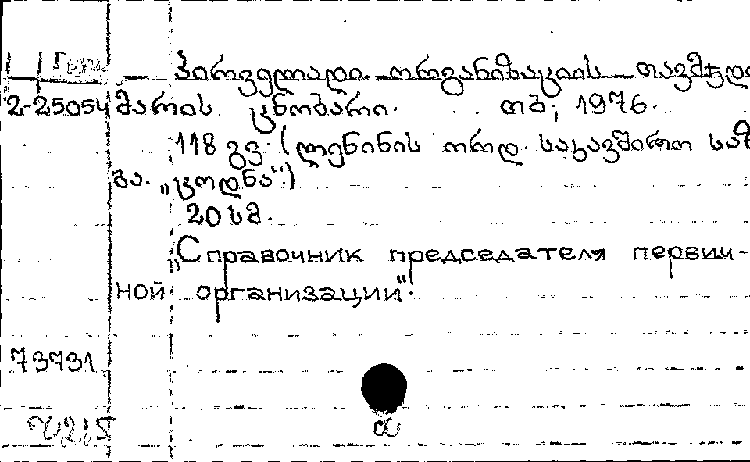 პირველადი ორგანიზაციის თავმჯდო
2-25054 მარის ცნობარი. თბ; 1976.
118 გვ. (ლენინის ორდ. საკავშირო საზ
გა. „ცოდნა")
20 სმ.
„Справочник председателя первич-
ной организации".
73731